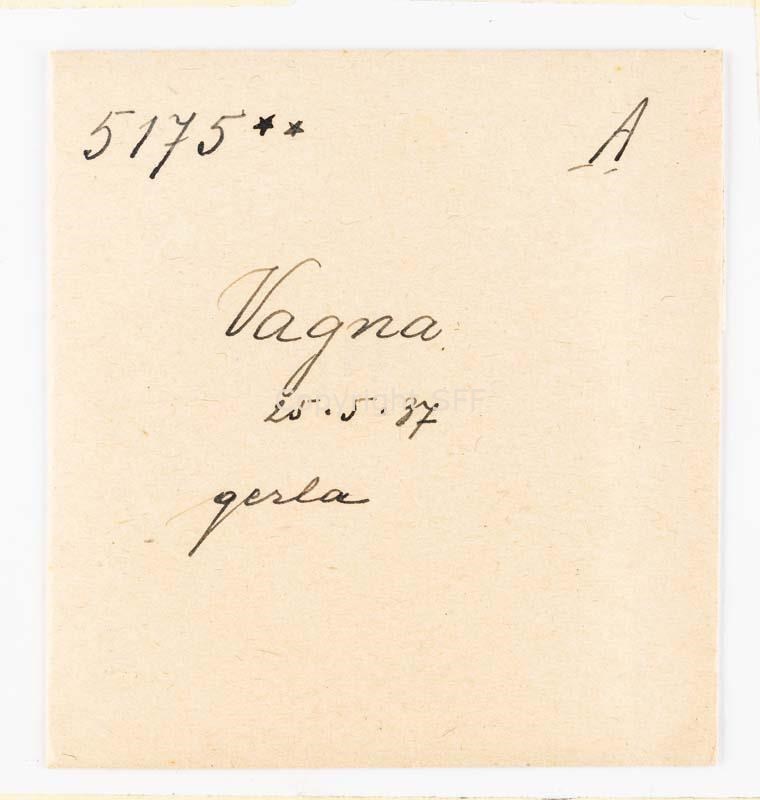 5175** A
Vagna
Copyright SFF
25.5.37
gerla